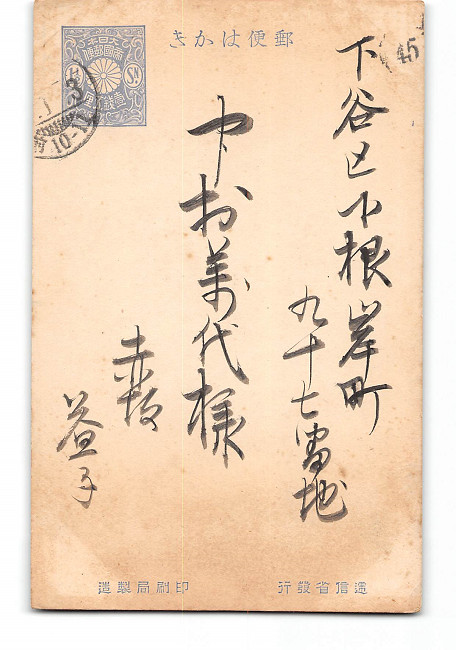 郵便はがき
大日本帝國郵便
壹錢五厘
1½Sn.
45
10-11
下谷区下根岸町
九十七番地
中村萬代様
赤坂
益子
遞信省發行
印刷局製造